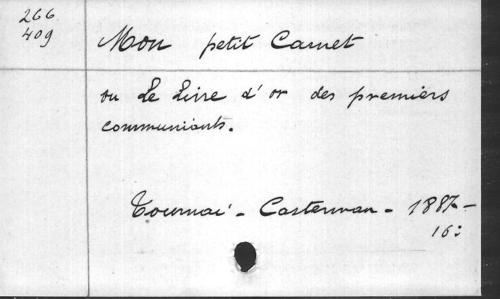 266
409
Mon petit Carnet
ou Le Livre d'or des premiers
communiants.
Tournai - Casterman - 1887 -
16: